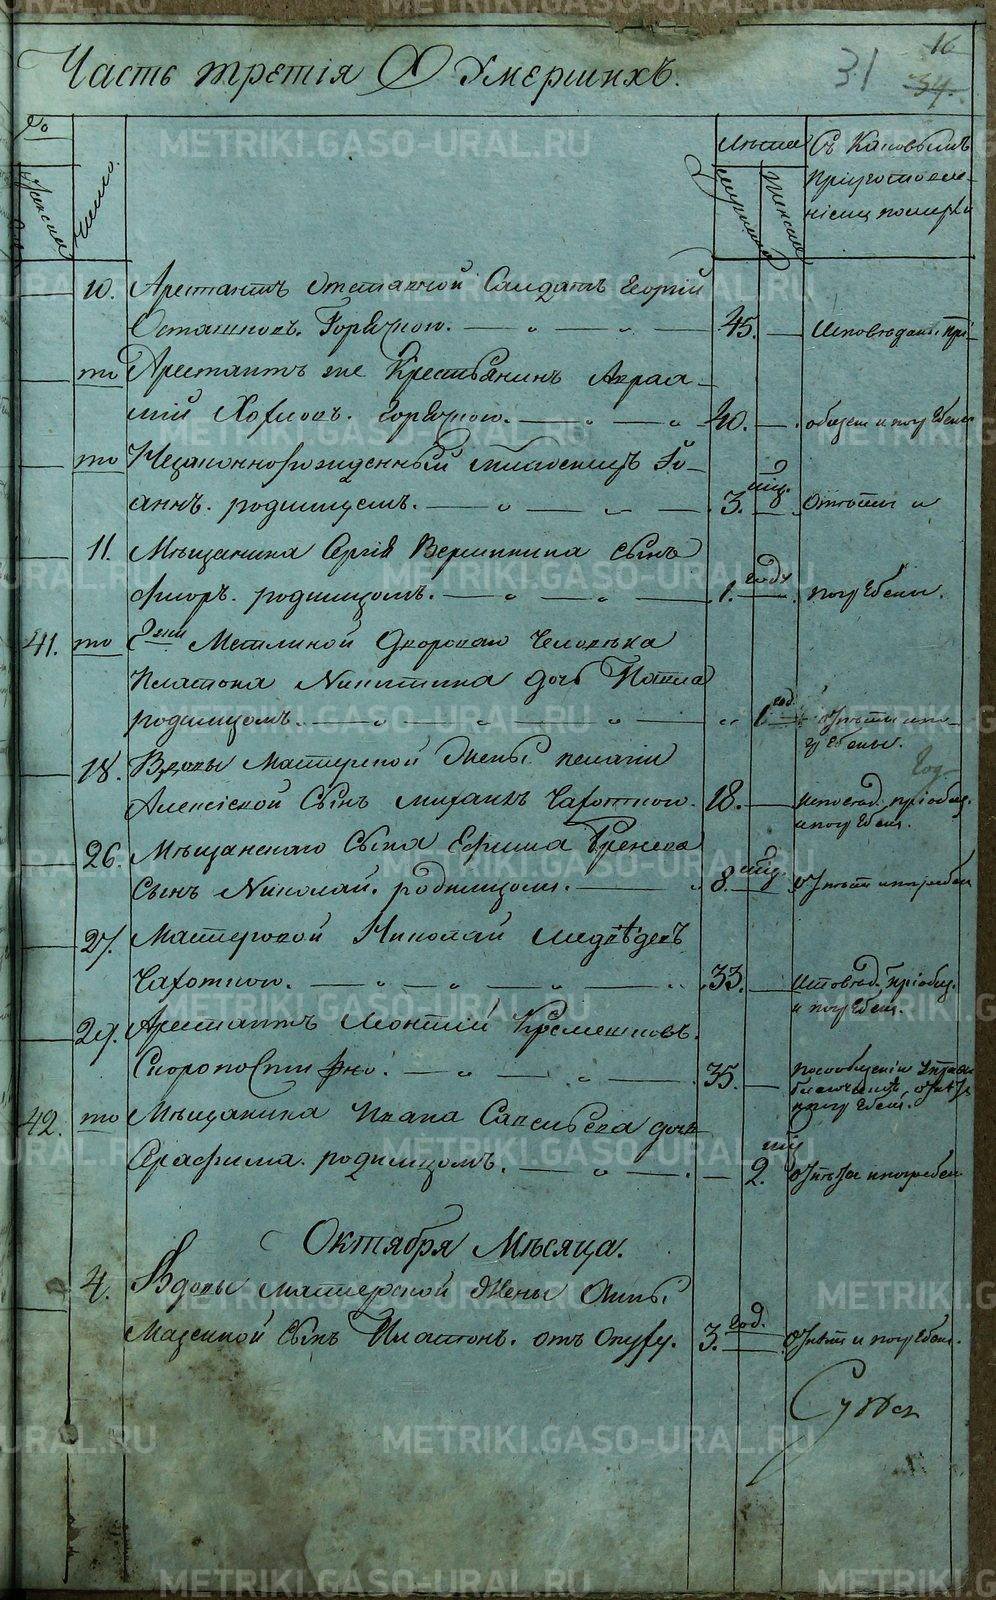 Часть третія О Умершихъ.
31
16
34.
№
Женска
Число.
Лѣта
Мужска
Женска
Съ Каковымъ
Пріуготовле-
ніемъ померли
10. Арестантъ Отставной Салдатъ Георгій
Осташковъ. Горячкою. 45. Исповѣданъ прі-
то Арестантъ же Крестьянинъ Авраа-
мій Хохловъ. Горячкою. 40. общен и погребенъ
то Незаконнорожденный младенецъ Іо-
аннъ. родимцемъ. 3. мѣц. Отпѣты и
11. Мѣщанина Сергія Вершинина сынъ
Флоръ. родимцомъ. 1. году погребены.
41. то Г-жи Метлиной Двороваго Человѣка
Платона Никитина дочь
родимцомъ. 1 год. Отпѣты и по-
гребены.
18. Вдовы Мастерской Жены Пелагіи
Алексѣевой Сынъ Михаилъ Чахоткою. 18. год Исповѣд. пріобщ.
и погребен.
26. Мѣщанскаго Сына Ефима
Сынъ Николай. родимцом. 8. мѣц. Отпѣт и погребен
27. Мастеровой Николай Медвѣдевъ
Чахоткою. 33. Исповѣд. пріобщ.
и погребен.
29. Арестантъ Леонтій
Скоропостижно. 35. По сообщеніи
отпѣт
и погребен.
42. то Мѣщанина Ивана Савельева дочь
Серафима. родимцомъ. мц 2. Отпѣта и погребен
Октября Мѣсяца.
4. Вдовы мастерской Жены Анны
Мазеиной Сынъ Платонъ. отъ Опуху. 3. год. Отпѣт и погребен.
METRIKI.GASO-URAL.RU